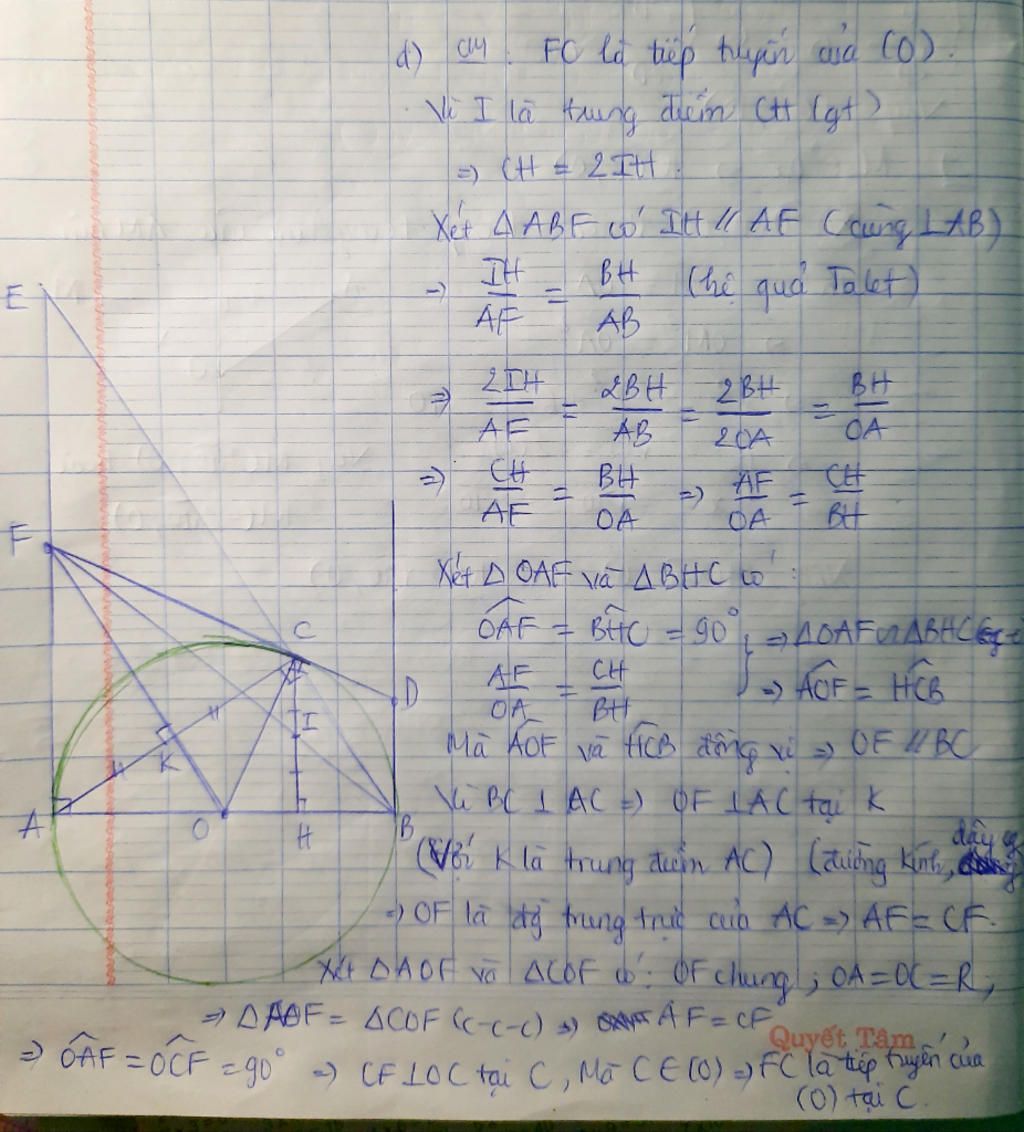 d) CM. FC là tiếp tuyến của (O).
Vì I là trung điểm CH (gt)
=> CH = 2IH.
Xét Δ ABF có IH // AF (cùng ⊥AB)
=> IH/AF = BH/AB (hệ quả Talet)
=> 2IH/AF = 2BH/AB = 2BH/2OA = BH/OA
=> CH/AF = BH/OA => AF/OA = CH/BH
Xét Δ OAF và Δ BHC có:
OAF = BHC = 90° } => ΔOAF ∽ ΔBHC
AF/OA = CH/BH => AOF = HCB
Mà AOF và HCB đồng vị => OF // BC
Vì BC ⊥ AC => OF ⊥ AC tại K
(Với K là trung điểm AC) (đường kính, dây
=> OF là đg trung trực của AC => AF = CF.
Xét ΔAOF và ΔCOF có: OF chung; OA = OC = R;
=> ΔAOF = ΔCOF (c-c-c) => AF = CF
=> OAF = OCF = 90° => CF ⊥ OC tại C, Mà C ∈ (O) => FC là tiếp tuyến của
(O) tại C.
Quyết Tâm
E
F
C
D
I
K
A
O
H
B